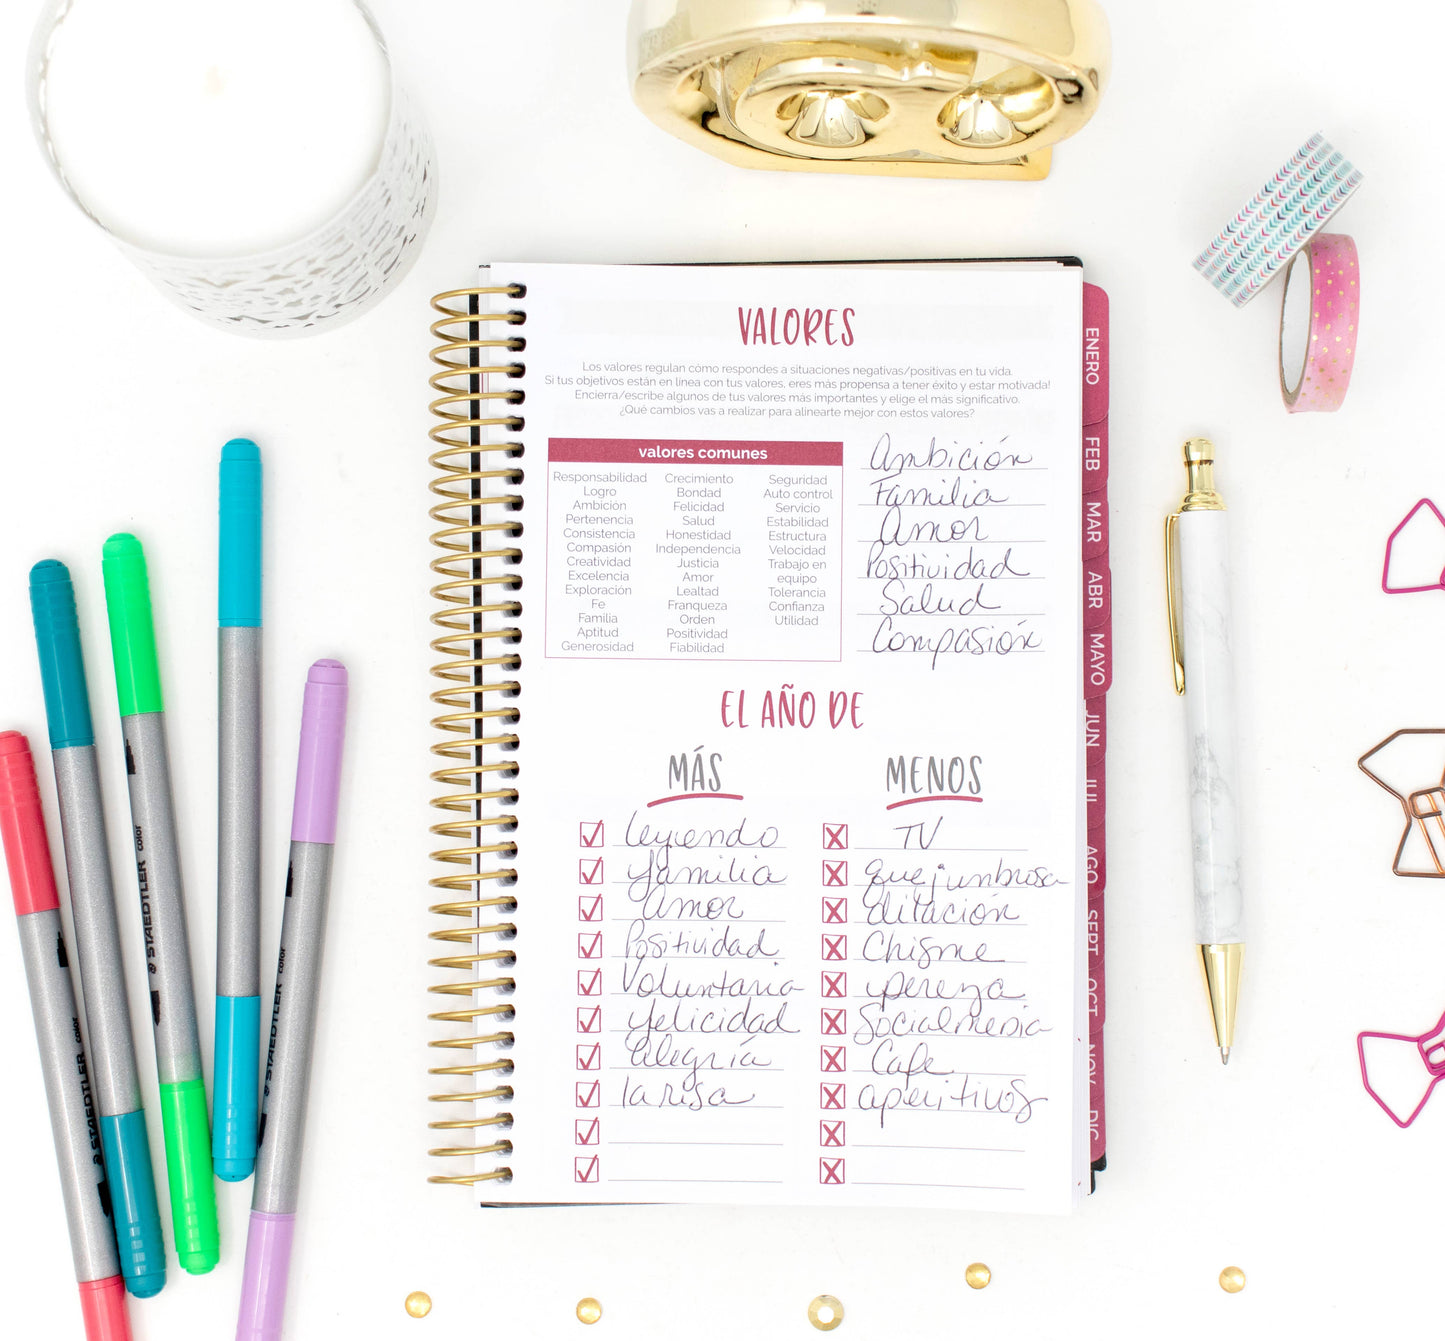 VALORES
Los valores regulan cómo respondes a situaciones negativas/positivas en tu vida.
Si tus objetivos están en línea con tus valores, eres más propensa a tener éxito y estar motivada!
Encierra/escribe algunos de tus valores más importantes y elige el más significativo.
¿Qué cambios vas a realizar para alinearte mejor con estos valores?
valores comunes
Responsabilidad
Logro
Ambición
Pertenencia
Consistencia
Compasión
Creatividad
Excelencia
Exploración
Fe
Familia
Aptitud
Generosidad
Crecimiento
Bondad
Felicidad
Salud
Honestidad
Independencia
Justicia
Amor
Lealtad
Franqueza
Orden
Positividad
Fiabilidad
Seguridad
Auto control
Servicio
Estabilidad
Estructura
Velocidad
Trabajo en
equipo
Tolerancia
Confianza
Utilidad
Ambición
Familia
Amor
Positividad
Salud
Compasión
EL AÑO DE
MÁS
leyiendo
familia
amor
Positividad
Voluntaria
felicidad
alegría
la risa
MENOS
TV
quejumbrosa
dilación
Chisme
pereza
Socialmedia
Cafe
aperitivos
ENERO
FEB
MAR
ABR
MAYO
JUN
JUL
AGO
SEPT
OCT
NOV
DIC
STAEDTLER color
STAEDTLER color
STAEDTLER color